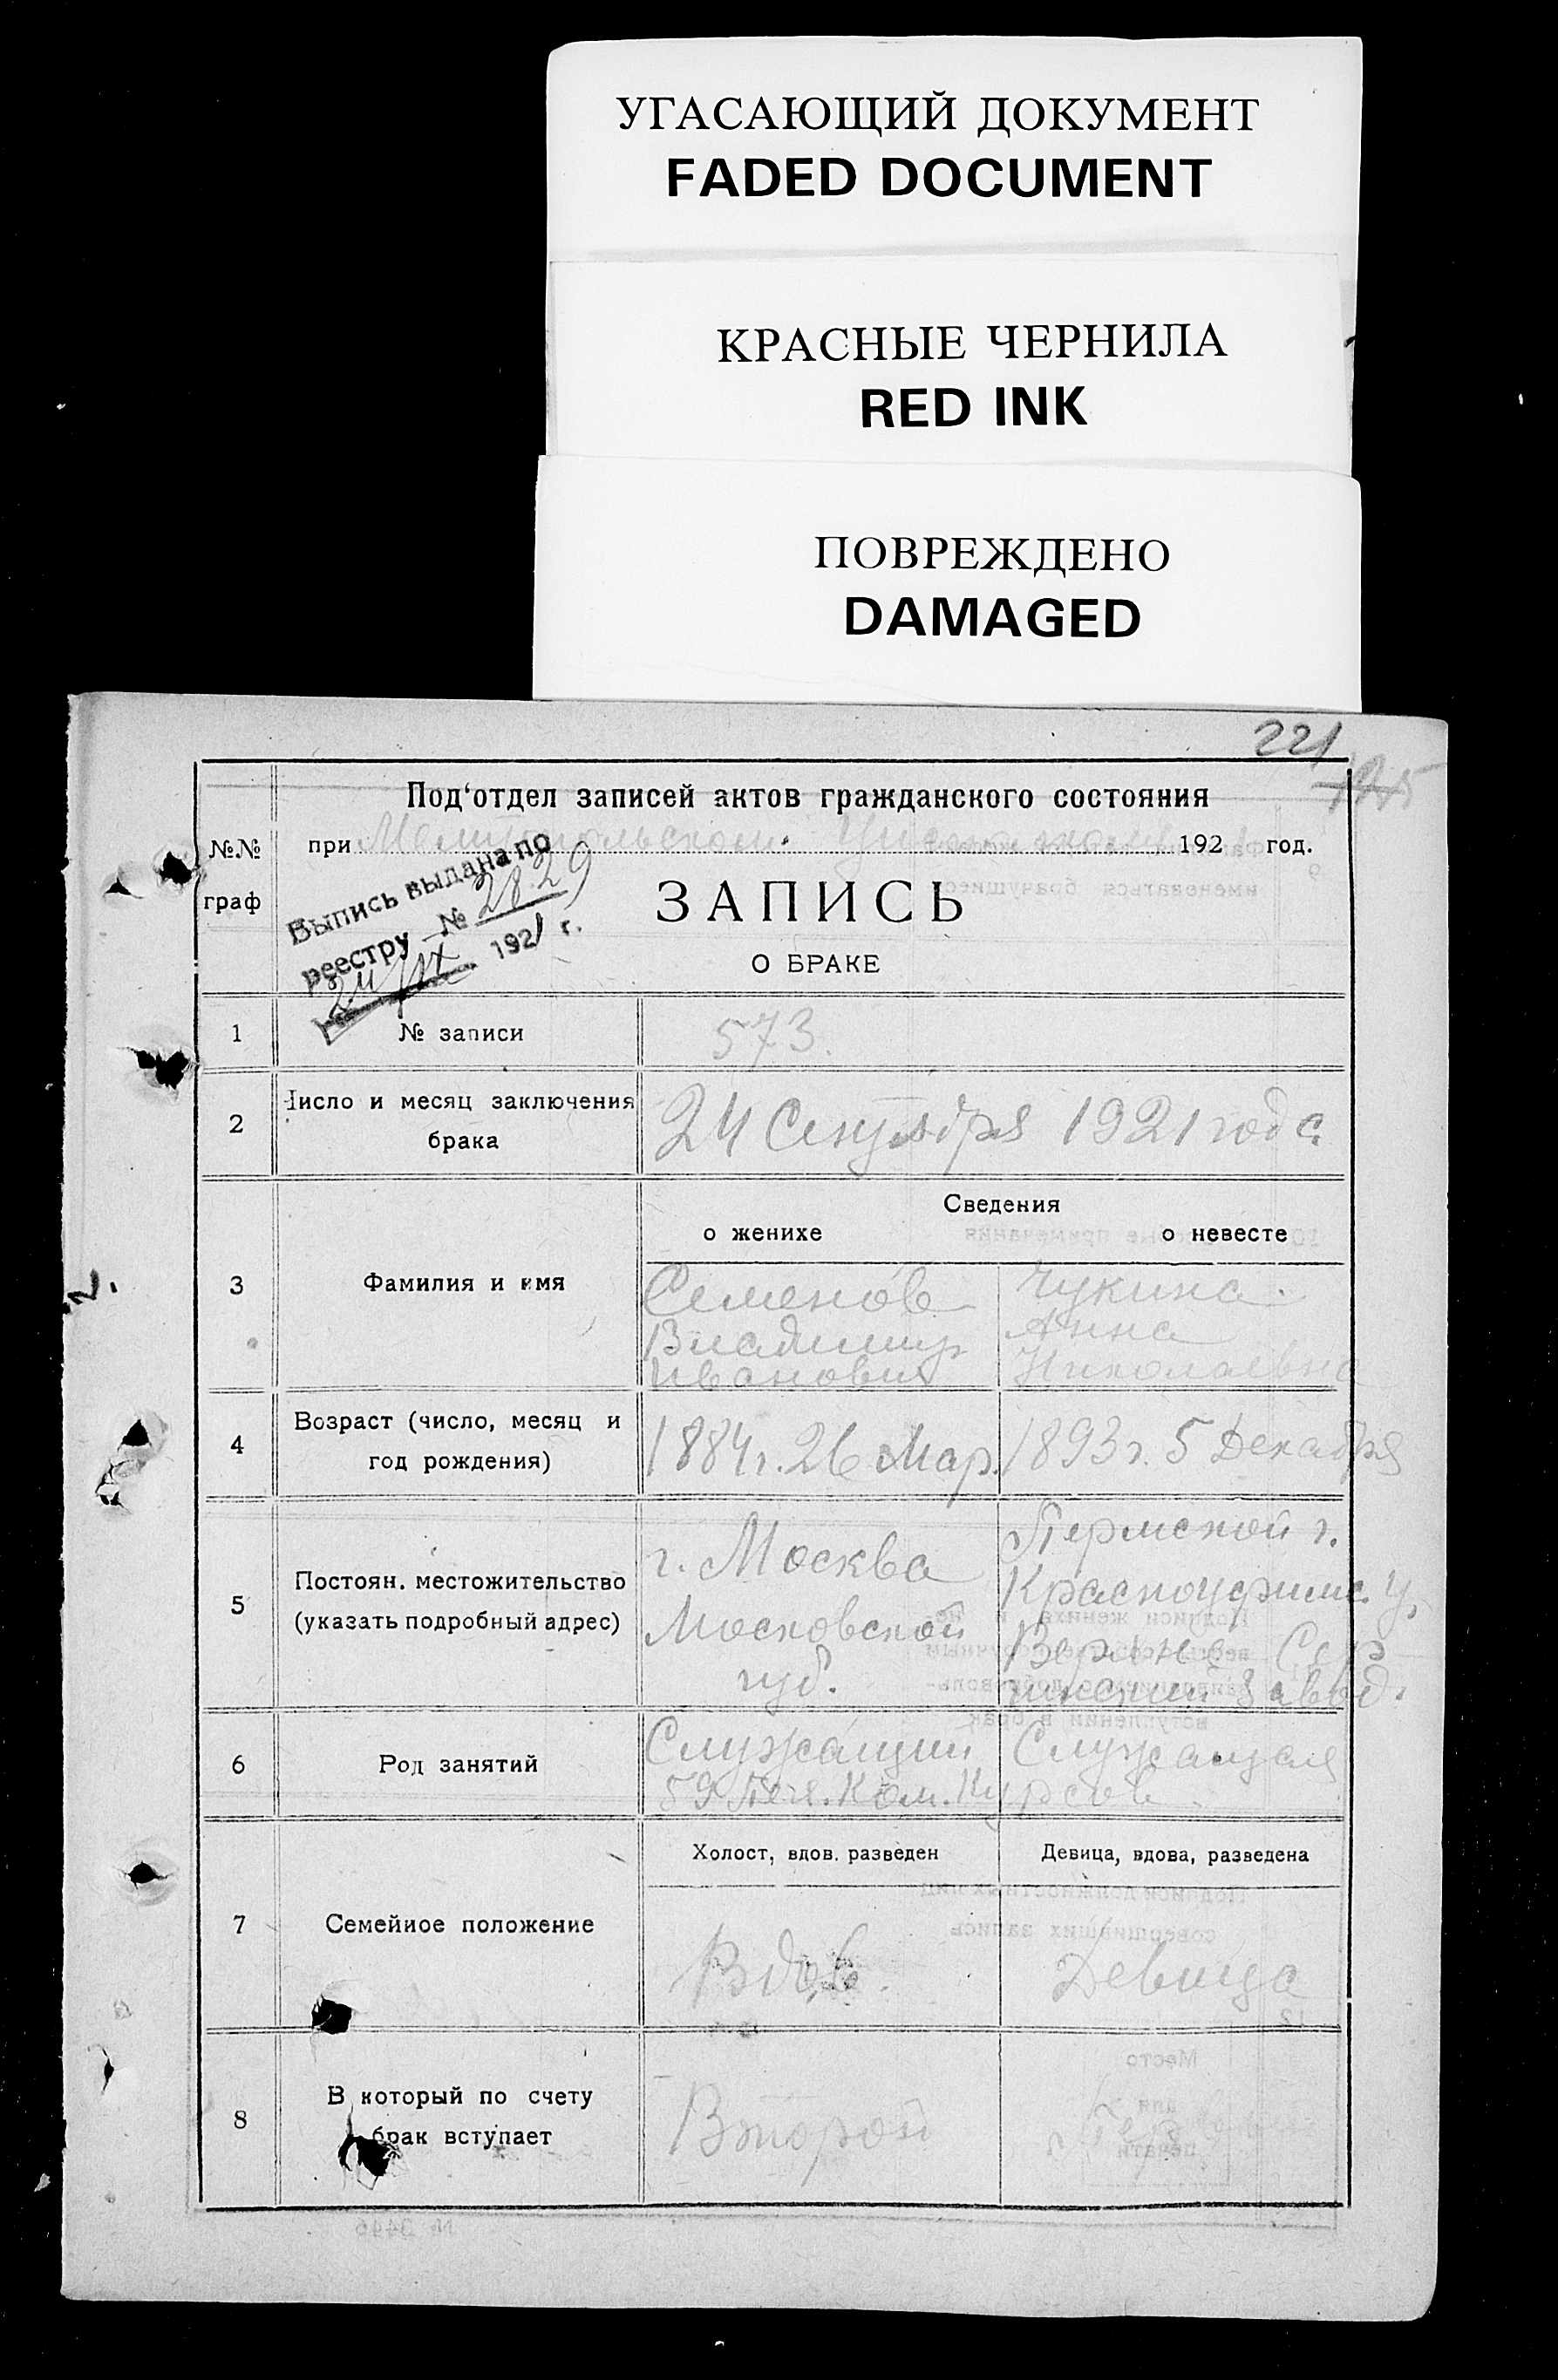 УГАСАЮЩИЙ ДОКУМЕНТ
FADED DOCUMENT
КРАСНЫЕ ЧЕРНИЛА
RED INK
ПОВРЕЖДЕНО
DAMAGED
221
Под‘отдел записей актов гражданского состояния
при 192 год.
№№
граф
Выпись выдана по
реестру № 2829
24/IX 1921 г.
ЗАПИСЬ
О БРАКЕ
1 № записи 573.
2 Число и месяц заключения
брака
24 Сентября 1921 года
Сведения
о женихе о невесте
3 Фамилия и имя
Семенов Чукина
Владимир Анна
Иванович Николаевна
4 Возраст (число, месяц и
год рождения)
1884 г. 26 Мар. 1893 г. 5 Декабря
5 Постоян. местожительство
(указать подробный адрес)
г. Москва
Московской
губ.
Пермской г.
Красноуфимс. у.
Верхне Сер
гинский завод.
6 Род занятий
Служащий Служащая
59 Пех. Ком. Курсов
Холост, вдов. разведен Девица, вдова, разведена
7 Семейное положение
Вдов. Девица
8 В который по счету
брак вступает
Второй